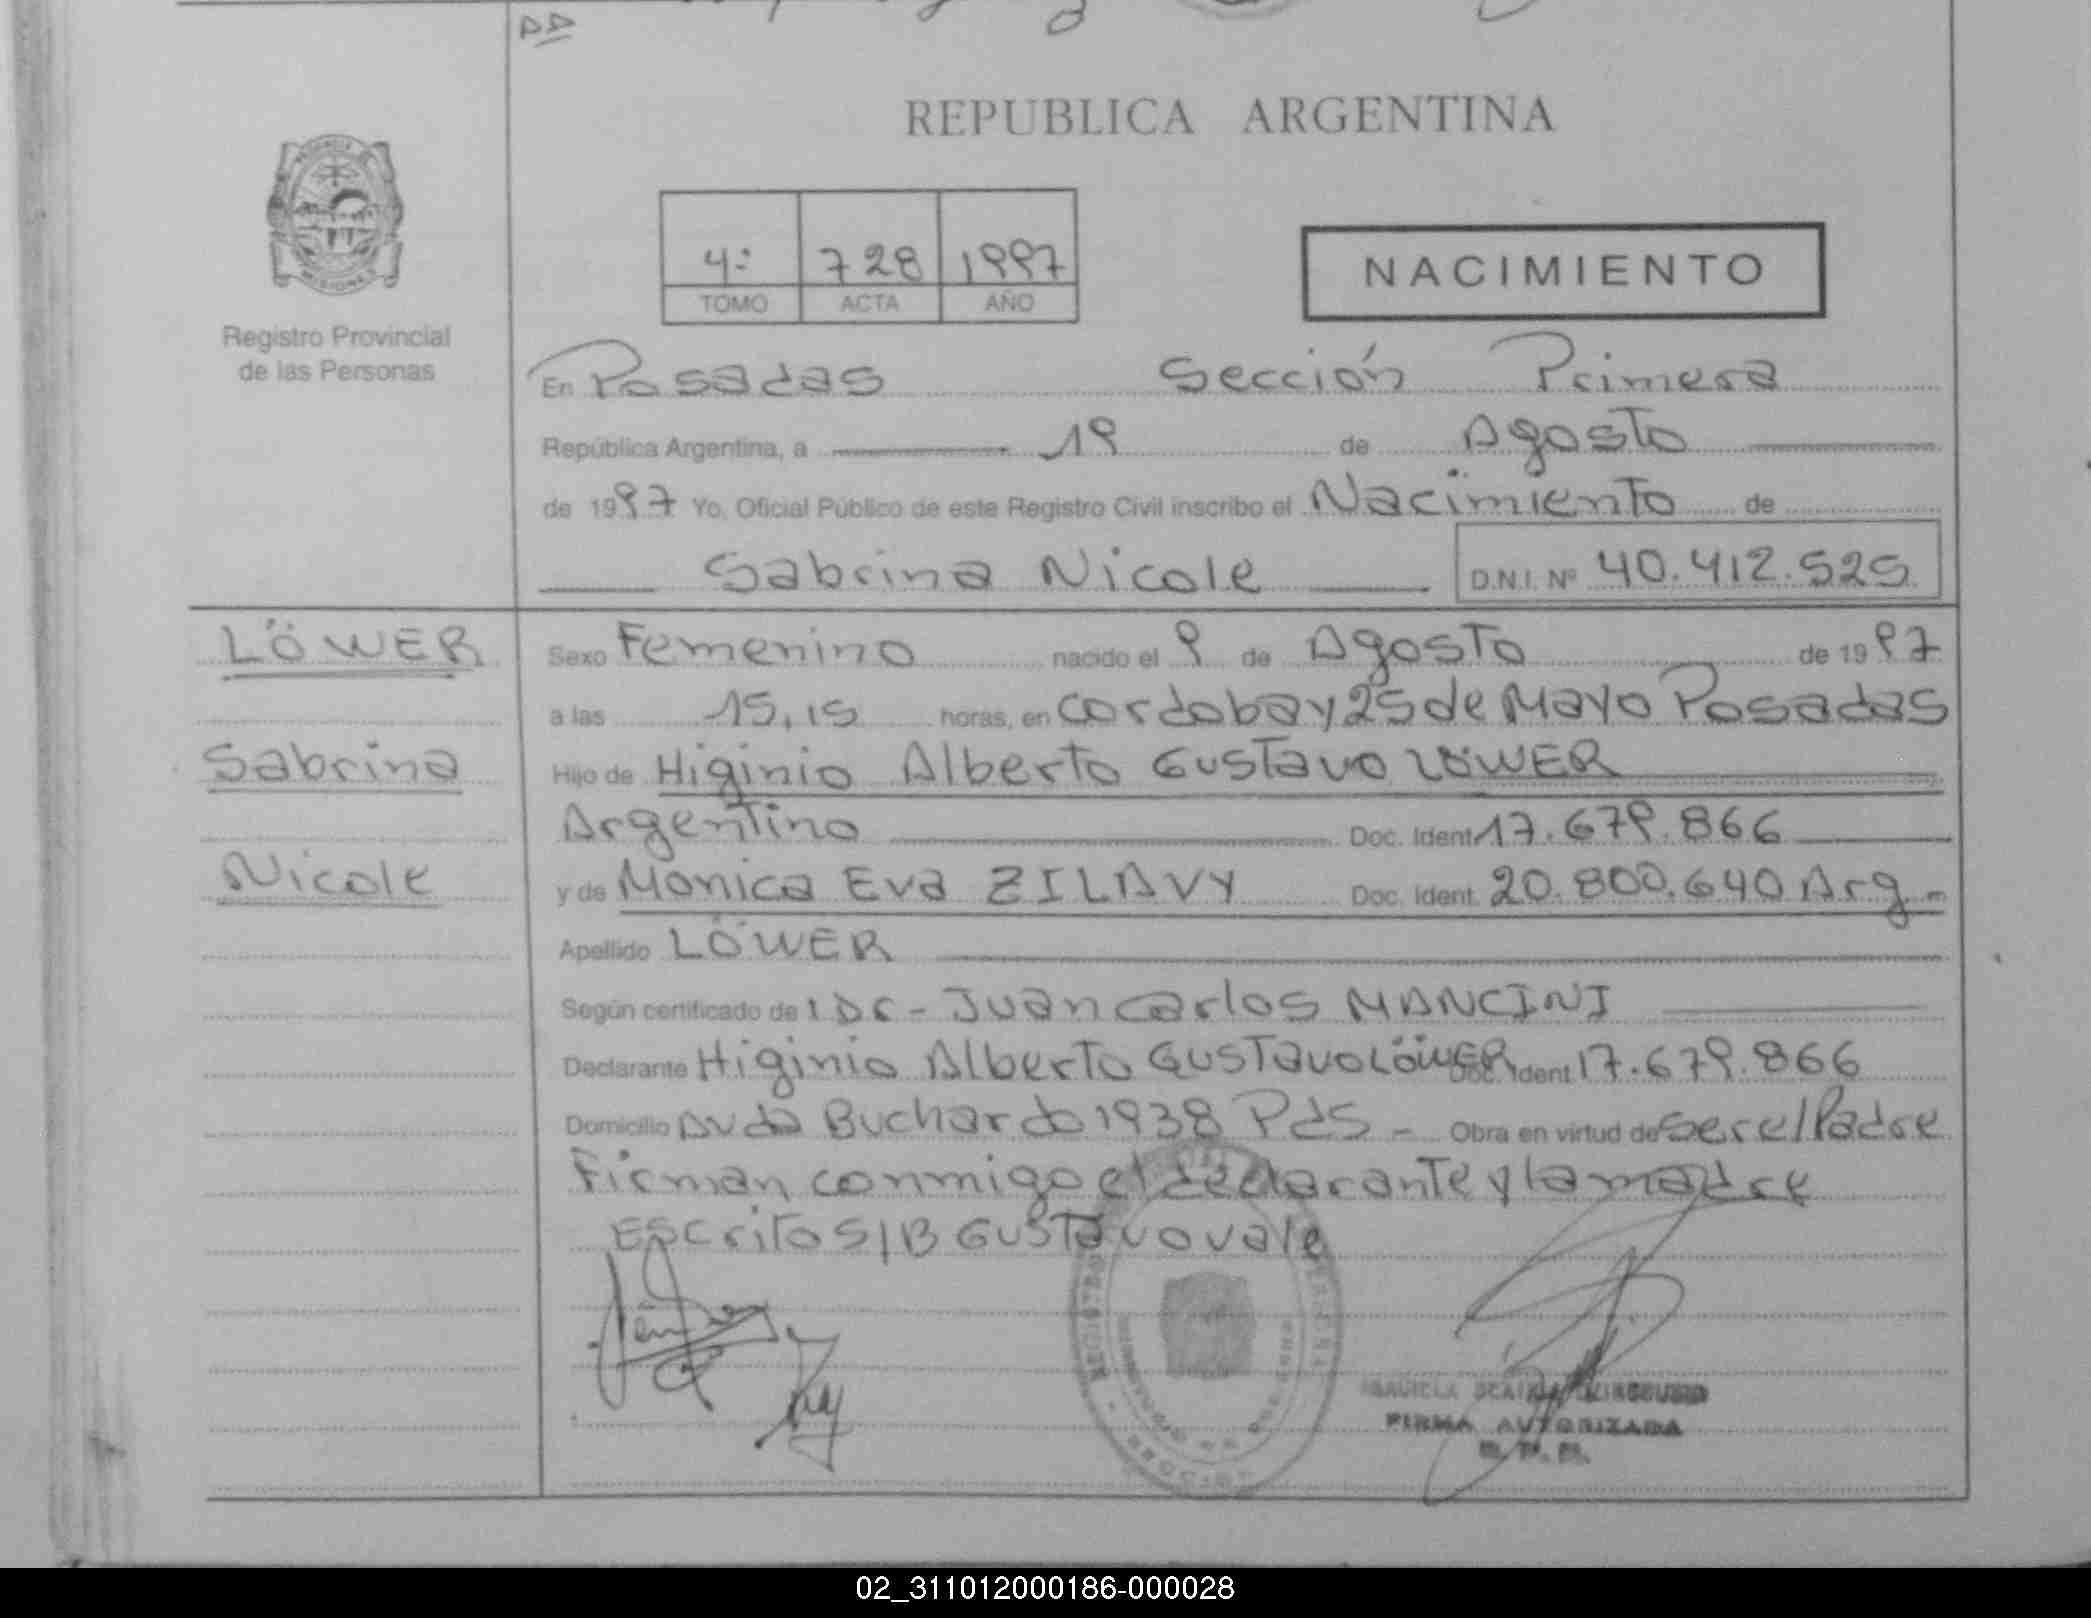 REPUBLICA ARGENTINA
4º 728 1997
TOMO ACTA AÑO
NACIMIENTO
Registro Provincial
de las Personas
En Posadas Sección Primera
República Argentina, a 19 de Agosto
de 1997 Yo, Oficial Público de este Registro Civil inscribo el Nacimiento de
Sabrina Nicole D.N.I. Nº 40.412.525
LÖWER
Sabrina
Nicole
Sexo Femenino nacido el 9 de Agosto de 1997
a las 15,15 horas, en Cordoba y 25 de Mayo Posadas
Hijo de Higinio Alberto Gustavo LÖWER
Argentino Doc. Ident 17.679.866
y de Monica Eva ZILAVY Doc. Ident. 20.800.640 Arg -
Apellido LÖWER
Según certificado de Juan Carlos MANCINI
Declarante Higinio Alberto Gustavo LÖWER Doc. Ident 17.679.866
Domicilio Avda Buchardo 1938 Pds - Obra en virtud de ser el Padre
Firman conmigo el declarante y la madre
Escrito S/B Gustavo vale
FIRMA AUTORIZADA
02_311012000186-000028